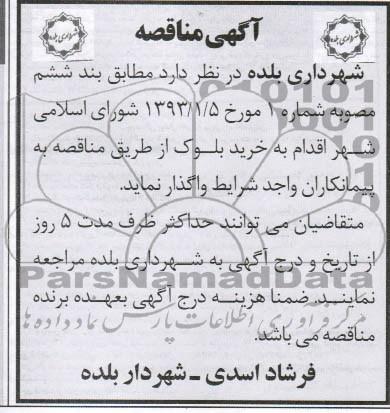 آگهی مناقصه
شهرداری بلده
شهرداری بلده
شهرداری بلده در نظر دارد مطابق بند ششم
مصوبه شماره ۱ مورخ ۱۳۹۳/۱/۵ شورای اسلامی
شهر اقدام به خرید بلوک از طریق مناقصه به
پیمانکاران واجد شرایط واگذار نماید.
متقاضیان می توانند حداکثر ظرف مدت ۵ روز
از تاریخ و درج آگهی به شهرداری بلده مراجعه
ParsNamadData
نمایند. ضمنا هزینه درج آگهی بعهده برنده
مرکز فرآوری اطلاعات پارس نماد داده ها
مناقصه می باشد.
فرشاد اسدی ـ شهردار بلده